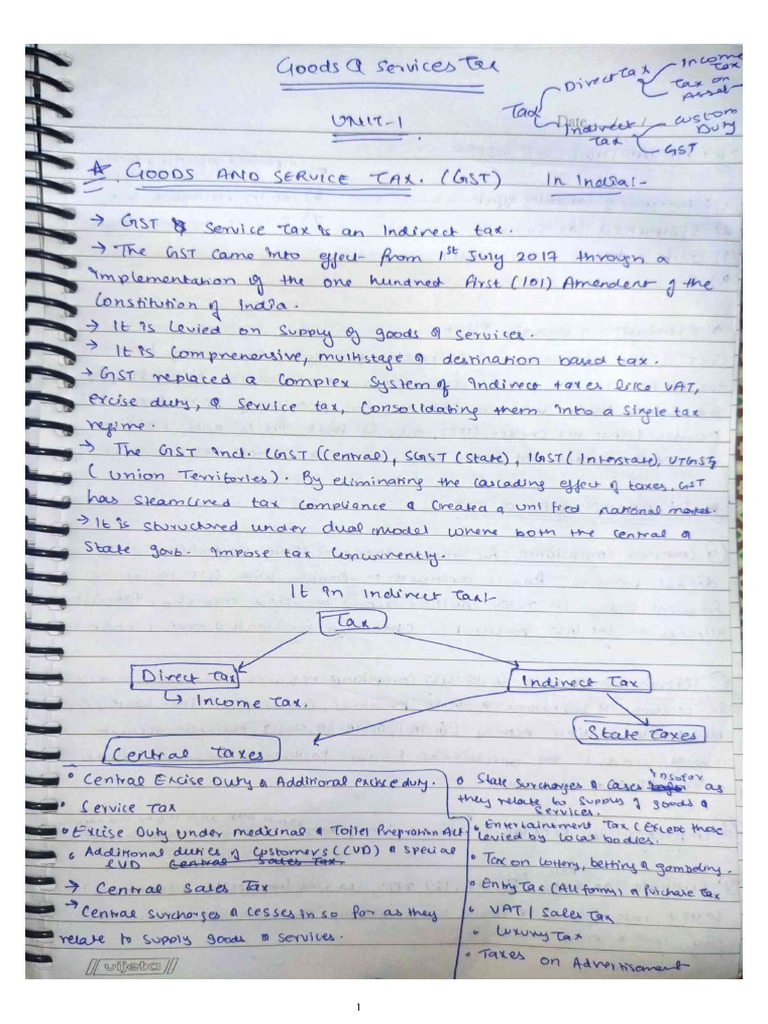 Goods & Services Tax
UNIT-1
Tax
Direct Tax
Income Tax
Tax on Asset
Indirect Tax
Custom Duty
GST
Date
GOODS AND SERVICE TAX. (GST) In India:-
→ GST & Service Tax is an Indirect tax.
→ The GST came into effect from 1st July 2017 through a
implementation of the one hundred first (101) Amendent of the
Constitution of India.
→ It is Levied on Supply of goods & services.
→ It is Comprehensive, multistage & destination based tax.
→ GST replaced a Complex System of Indirect taxes like VAT,
excise duty, & Service tax, Consolidating them into a single tax
regime.
→ The GST Incl. CGST (Central), SGST (State), IGST (Interstate), UTGST
(Union Territories). By eliminating the cascading effect of taxes, GST
has steamlined tax compliance & Created a unified national market.
→ It is sturuetured under dual model where both the central &
State govt. impose tax concurrently.
It in Indirect Tax!
Tax
Direct Tax
↳ Income Tax.
Indirect Tax
State Taxes
Central Taxes
• Central Excise Duty & Additional excise duty.
• Service Tax
• Excise Duty under medicinal & Toilet Prepration Act
• Additional duties of Customers (CVD) & special
CVD Central Sales Tax.
→ Central Sales Tax
→ Central surcharges & cesses in so for as they
relate to supply goods & services.
• State surcharges & Cases insofar as
they relate to supply of goods &
Services.
• Entertaintment Tax (Except those
levied by local bodies.
• Tax on lottery, betting & gambeling.
• Entry Tax (All forms) & Purchase Tax
• VAT / Sales Tax
• Luxury Tax
• Taxes on Advertisement
vijeta
1